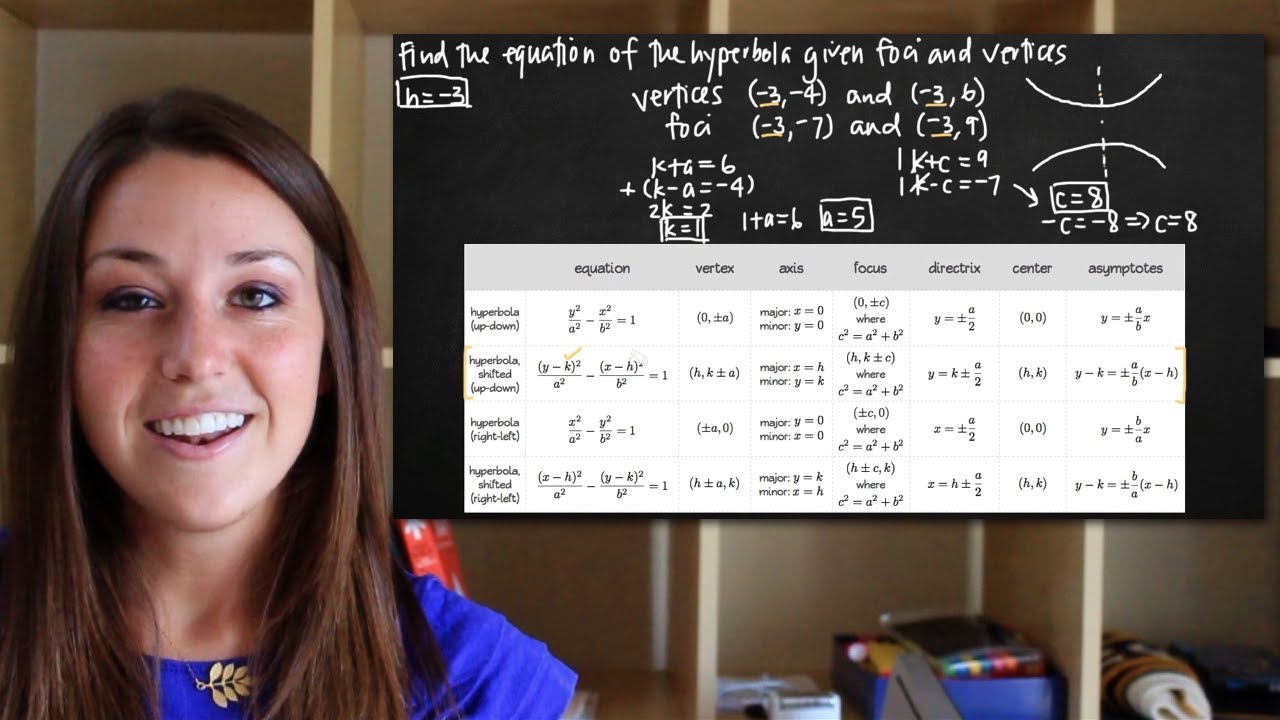 Find the equation of the hyperbola given foci and vertices
h=-3
vertices (-3,-4) and (-3,6)
foci (-3,-7) and (-3,9)
k+a=6
+(k-a=-4)
2k=2
k=1
1+a=6 a=5
1 k+c=9
1 k-c=-7
c=8
-c=-8⇒c=8
equation vertex axis focus directrix center asymptotes
hyperbola (up-down) y²/a² − x²/b² = 1 (0, ±a) major: x = 0 minor: y = 0 (0, ±c) where c² = a² + b² y = ±a/2 (0, 0) y = ±a/b x
hyperbola, shifted (up-down) (y − k)²/a² − (x − h)²/b² = 1 (h, k ± a) major: x = h minor: y = k (h, k ± c) where c² = a² + b² y = k ± a/2 (h, k) y − k = ±a/b(x − h)
hyperbola (right-left) x²/a² − y²/b² = 1 (±a, 0) major: y = 0 minor: x = 0 (±c, 0) where c² = a² + b² x = ±a/2 (0, 0) y = ±b/a x
hyperbola, shifted (right-left) (x − h)²/a² − (y − k)²/b² = 1 (h ± a, k) major: y = k minor: x = h (h ± c, k) where c² = a² + b² x = h ± a/2 (h, k) y − k = ±b/a(x − h)